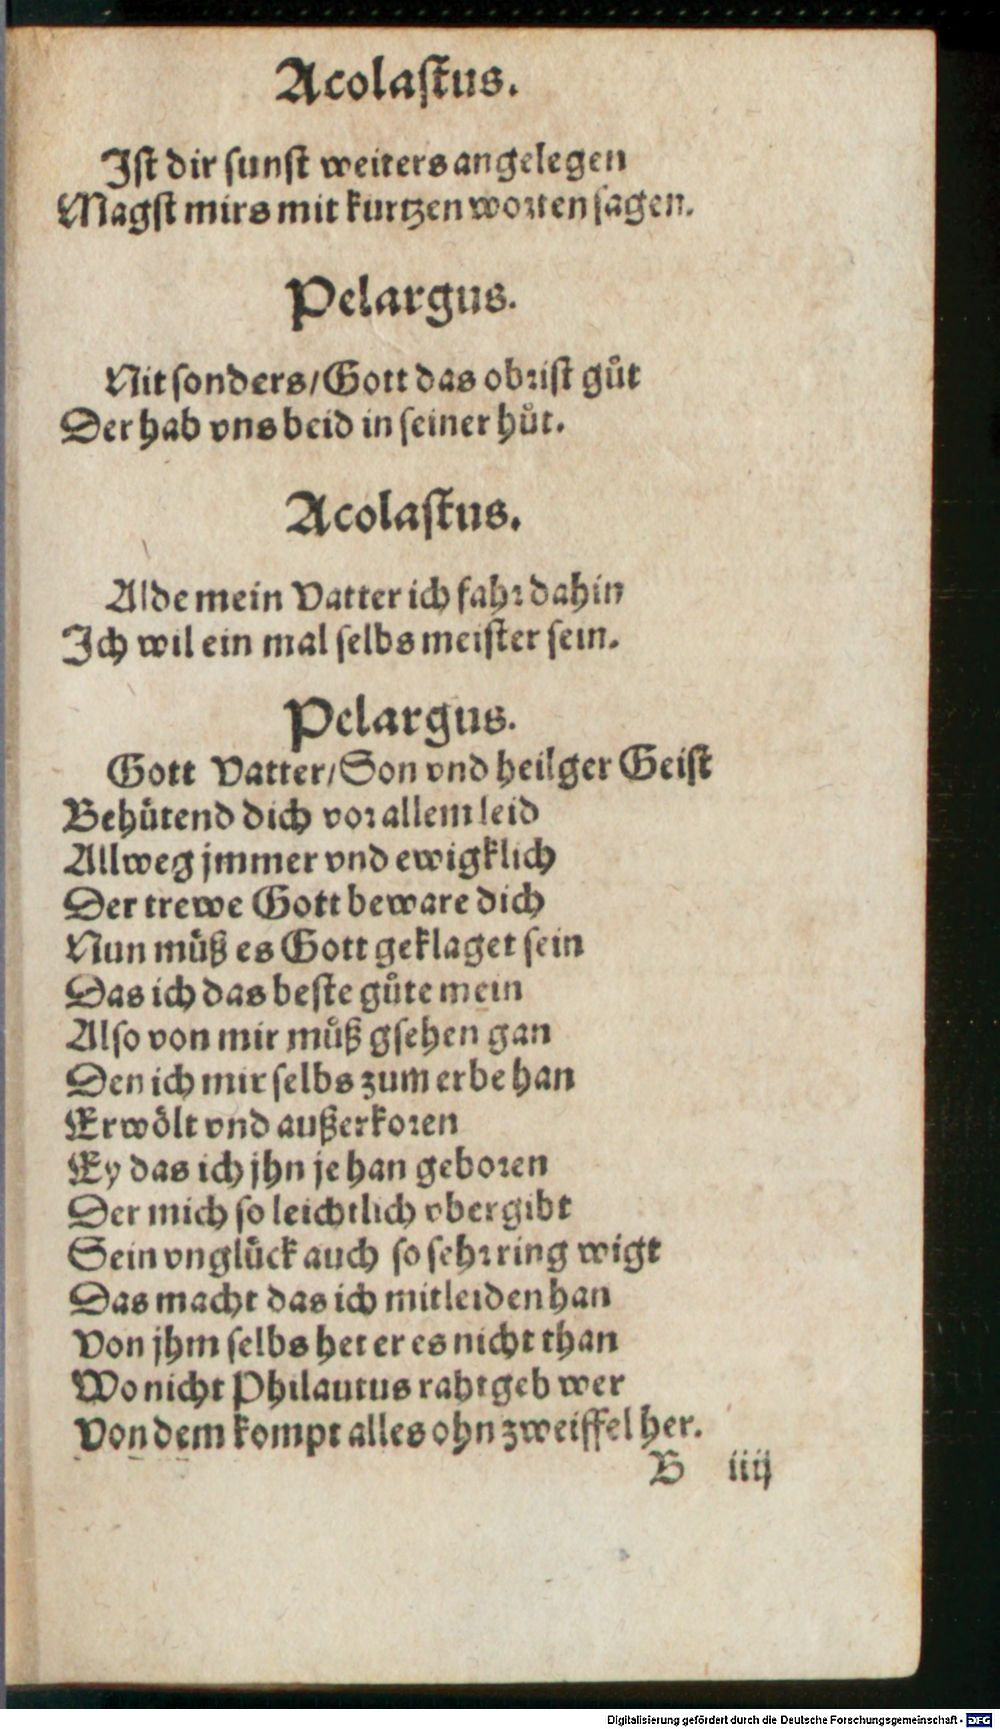 Acolaſtus.
Iſt dir ſunſt weiters angelegen
Magſt mirs mit kurtzen worten ſagen.
Pelargus.
Nit ſonders / Gott das obriſt gůt
Der hab vns beid in ſeiner hůt.
Acolaſtus.
Alde mein Vatter ich fahr dahin
Ich wil ein mal ſelbs meiſter ſein.
Pelargus.
Gott Vatter / Son vnd heilger Geiſt
Behütend dich vor allem leid
Allweg jmmer vnd ewigklich
Der trewe Gott beware dich
Nun můß es Gott geklaget ſein
Das ich das beſte gůte mein
Alſo von mir můß gſehen gan
Den ich mir ſelbs zum erbe han
Erwölt vnd außerkoren
Ey das ich jhn je han geboren
Der mich ſo leichtlich vbergibt
Sein vnglück auch ſo ſehr ring wigt
Das macht das ich mitleiden han
Von jhm ſelbs het er es nicht than
Wo nicht Philautus rahtgeb wer
Von dem kompt alles ohn zweiffel her.
B iiij
Digitalisierung gefördert durch die Deutsche Forschungsgemeinschaft - DFG